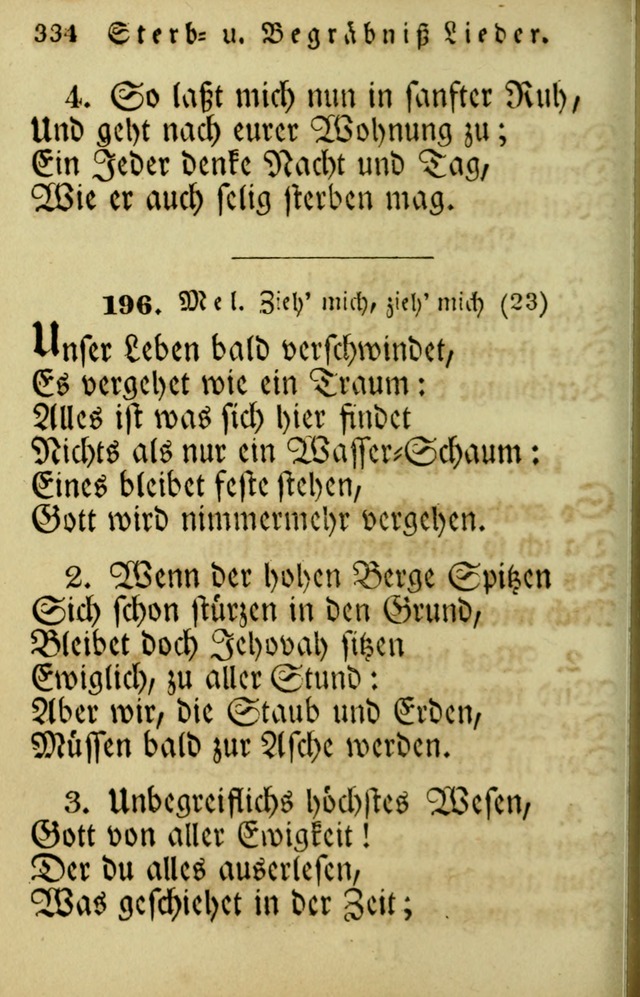 334 Sterb= u. Begräbniß Lieder.
4. So laßt mich nun in sanfter Ruh,
Und geht nach eurer Wohnung zu;
Ein Jeder denke Nacht und Tag,
Wie er auch selig sterben mag.
196. Mel. Zieh' mich, zieh' mich (23)
Unser Leben bald verschwindet,
Es vergehet wie ein Traum:
Alles ist was sich hier findet
Nichts als nur ein Wasser=Schaum:
Eines bleibet feste stehen,
Gott wird nimmermehr vergehen.
2. Wenn der hohen Berge Spitzen
Sich schon stürzen in den Grund,
Bleibet doch Jehovah sitzen
Ewiglich, zu aller Stund:
Aber wir, die Staub und Erden,
Müssen bald zur Asche werden.
3. Unbegreiflichs höchstes Wesen,
Gott von aller Ewigkeit!
Der du alles auserlesen,
Was geschiehet in der Zeit;